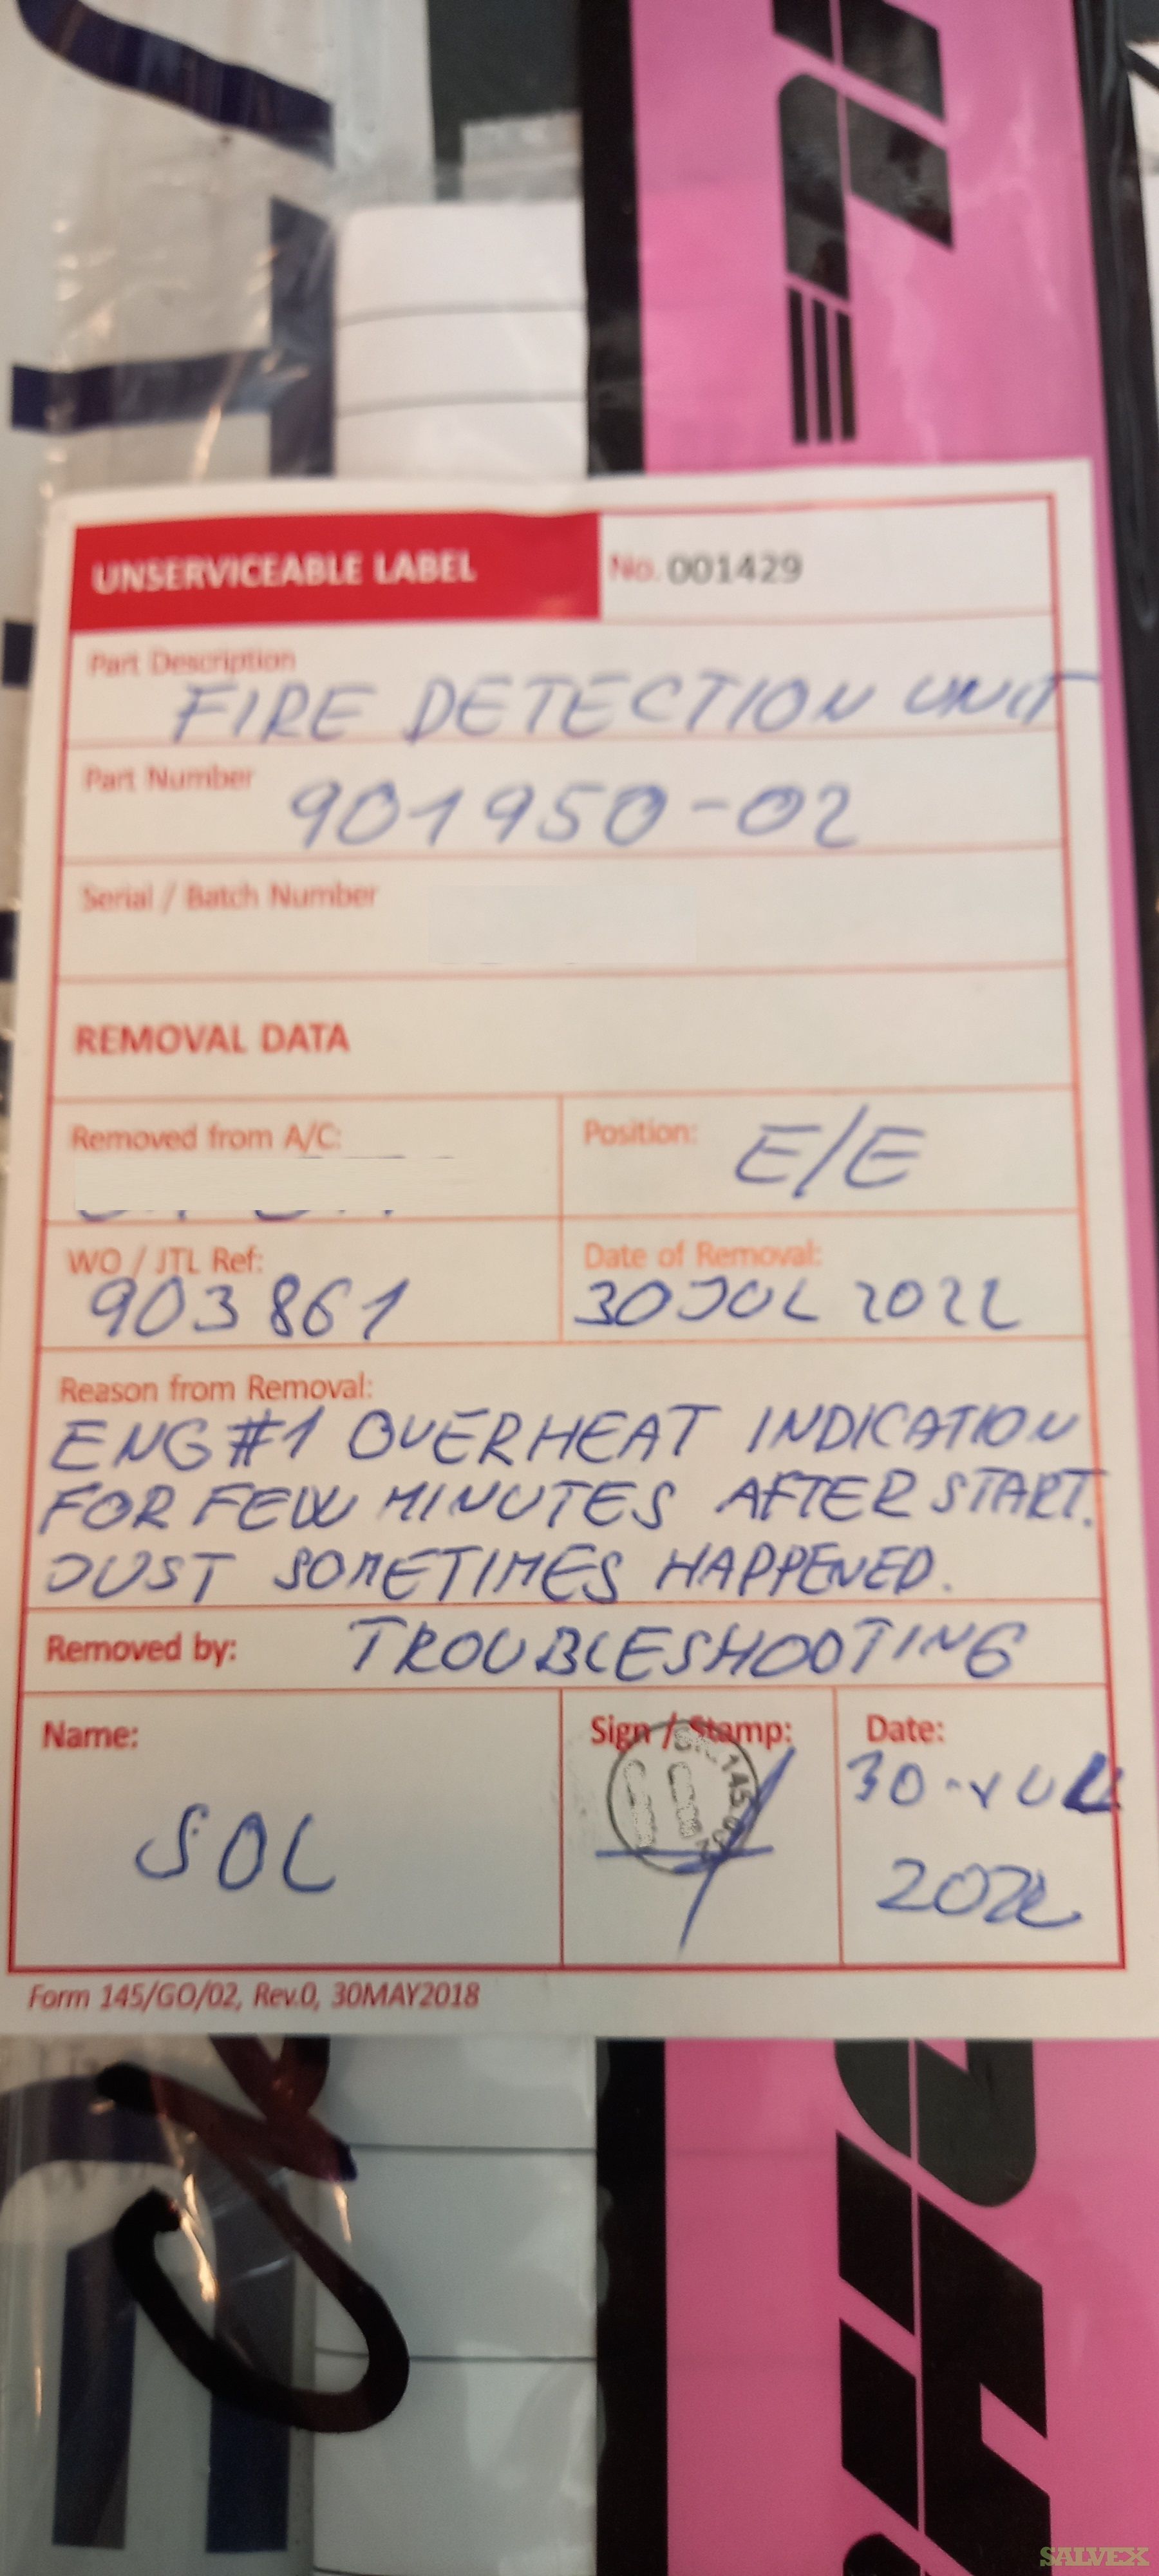 UNSERVICEABLE LABEL No. 001429
Part Description
FIRE DETECTION UNIT
Part Number 901950-02
Serial / Batch Number
REMOVAL DATA
Removed from A/C:
Position: E/E
WO / JTL Ref:
903861
Date of Removal:
30 JUL 2022
Reason from Removal:
ENG #1 OVERHEAT INDICATION
FOR FEW MINUTES AFTER START.
JUST SOMETIMES HAPPENED.
Removed by: TROUBLESHOOTING
Name:
SOL
Sign / Stamp:
145
Date:
30-JUL
2022
Form 145/GO/02, Rev.0, 30MAY2018
SALVEX